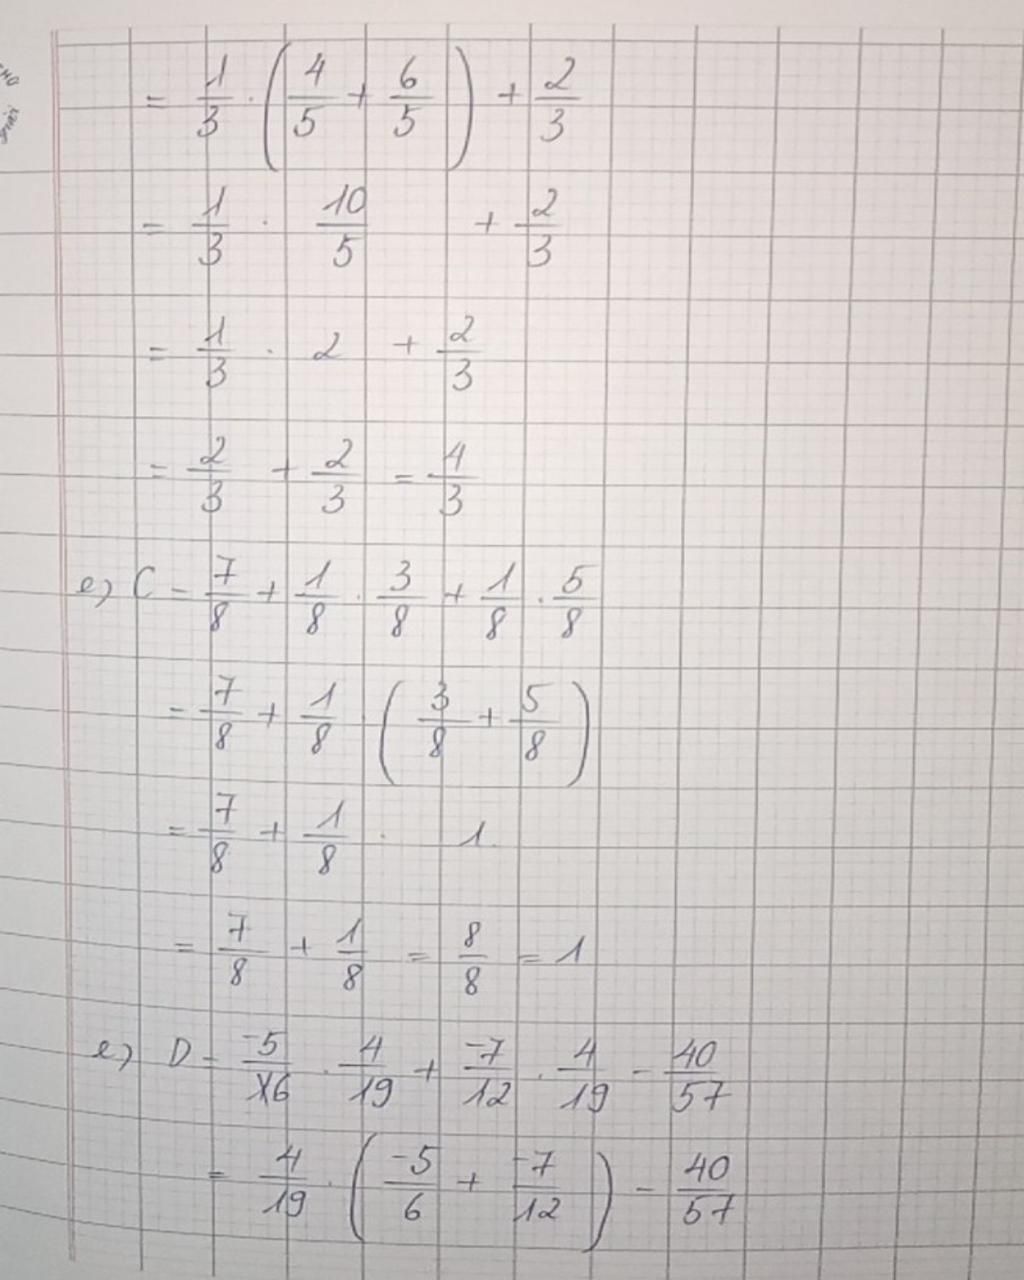 = 1/3 · (4/5 + 6/5) + 2/3
= 1/3 · 10/5 + 2/3
= 1/3 · 2 + 2/3
= 2/3 + 2/3 = 4/3
e) C = 7/8 + 1/8 · 3/8 + 1/8 · 5/8
= 7/8 + 1/8 · (3/8 + 5/8)
= 7/8 + 1/8 · 1
= 7/8 + 1/8 = 8/8 = 1
e) D = -5/6 · 4/19 + -7/12 · 4/19 - 40/57
= 4/19 · (-5/6 + -7/12) - 40/57